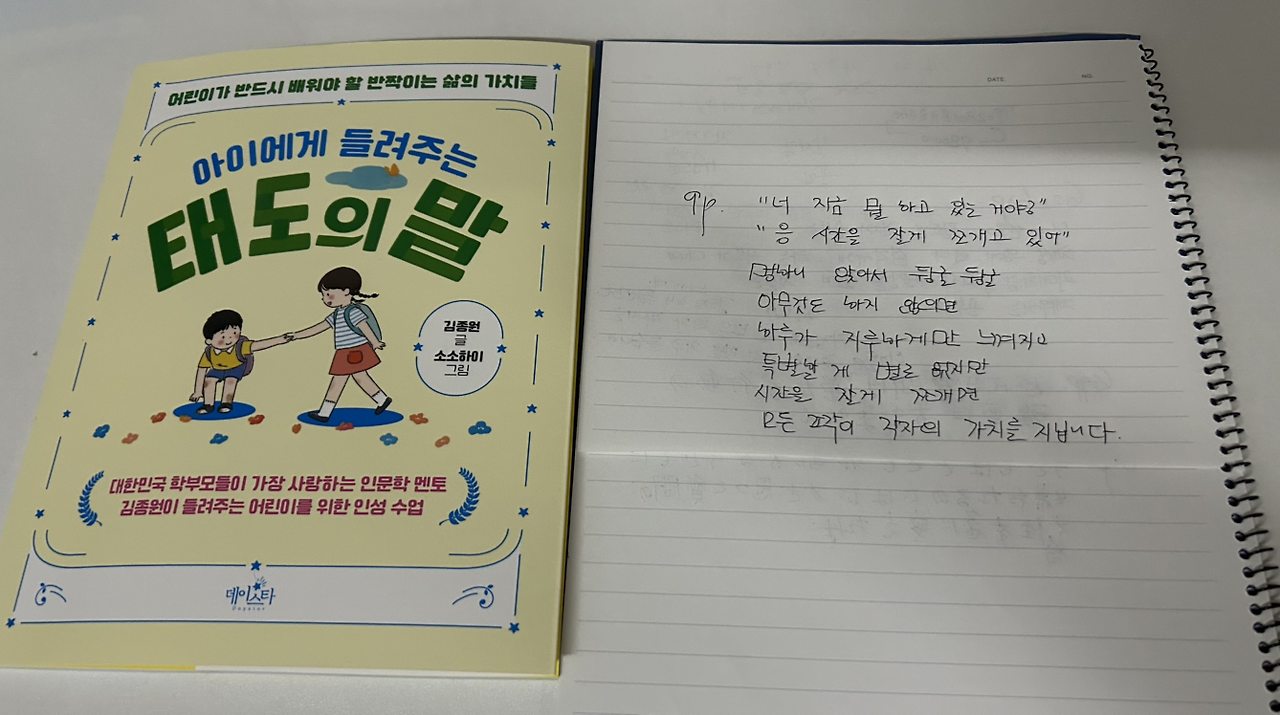 어린이가 반드시 배워야 할 반짝이는 삶의 가치들
아이에게 들려주는
태도의 말
김종원
글
소소하이
그림
대한민국 학부모들이 가장 사랑하는 인문학 멘토
김종원이 들려주는 어린이를 위한 인성 수업
데이스타
Daystar
DATE.
NO.
9p. "너 지금 뭘 하고 있는 거야?"
"응 시간을 잘게 쪼개고 있어"
멍하니 앉아서 뒹굴 뒹굴
아무것도 하지 않으면
하루가 지루하게만 느껴지고
특별할 게 별로 없지만
시간을 잘게 쪼개면
모든 조각이 각자의 가치를 지닙니다.